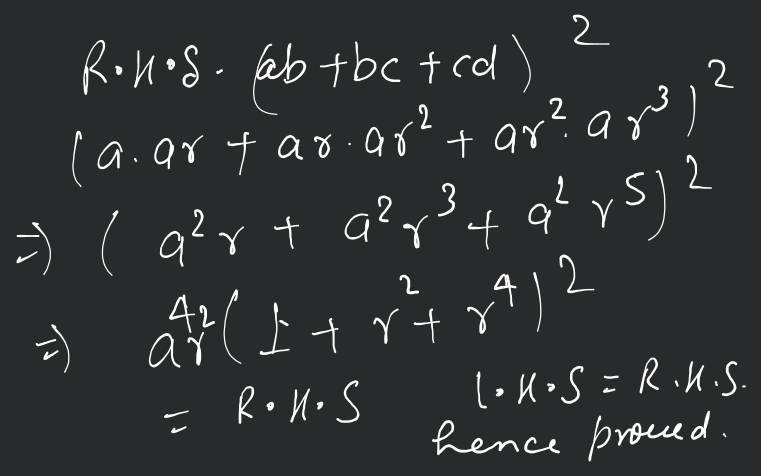 R.H.S. (ab + bc + cd)²
(a.ar + ar.ar² + ar².ar³)²
⇒ (a²r + a²r³ + a²r⁵)²
⇒ a⁴r²(1 + r² + r⁴)²
= R.H.S
L.H.S = R.H.S.
hence proved.